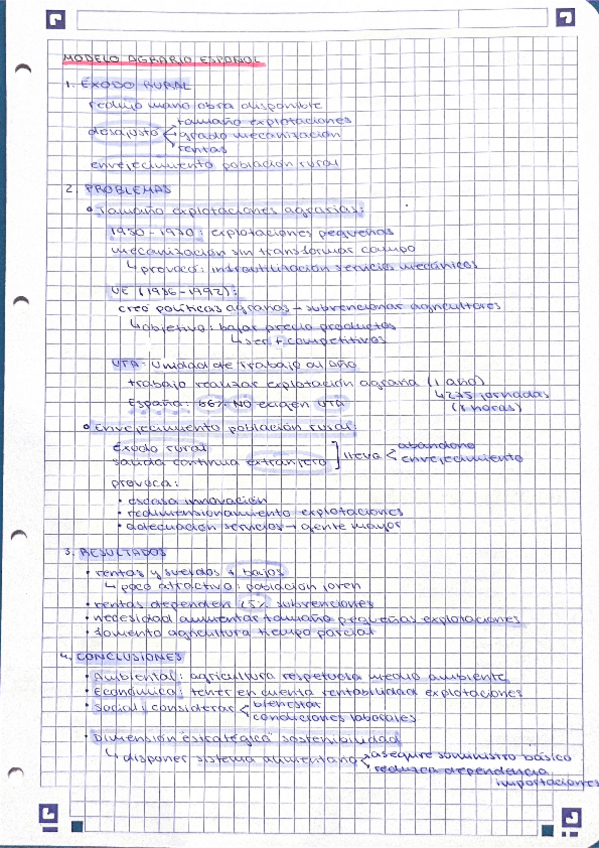 MODELO AGRARIO ESPAÑOL
1. ÉXODO RURAL
redujo mano obra disponible
desajuste
tamaño explotaciones
grado mecanización
rentas
envejecimiento población rural
2. PROBLEMAS
• Tamaño explotaciones agrarias:
explotaciones pequeñas
mecanización sin transformar campo
↳ provocó: infrautilización servicios mecánicos
UE (1986-1992):
creó políticas agrarias → subvencionar agricultores
↳ objetivo: bajar precio productos
↳ ser + competitivos
UTA: Unidad de Trabajo al Año
trabajo realizar explotación agraria (1 año)
↳ 275 jornadas
(8 horas)
España: NO exigen UTA
• Envejecimiento población rural:
éxodo rural
salida continua extranjero
lleva
abandono
envejecimiento
provoca:
• escasa innovación
• redimensionamiento explotaciones
• adecuación servicios → gente mayor
3. RESULTADOS
• rentas y sueldos + bajos
↳ poco atractivo: población joven
• rentas dependen subvenciones
• necesidad aumentar tamaño pequeñas explotaciones
• fomento agricultura tiempo parcial
4. CONCLUSIONES
• Ambiental: agricultura respetuosa medio ambiente
• Económica: tener en cuenta rentabilidad explotaciones
• Social: considerar
bienestar
condiciones laborales
• Dimensión estratégica sostenibilidad
↳ disponer sistema alimentario
asegure suministro básico
reduzca dependencia
importaciones